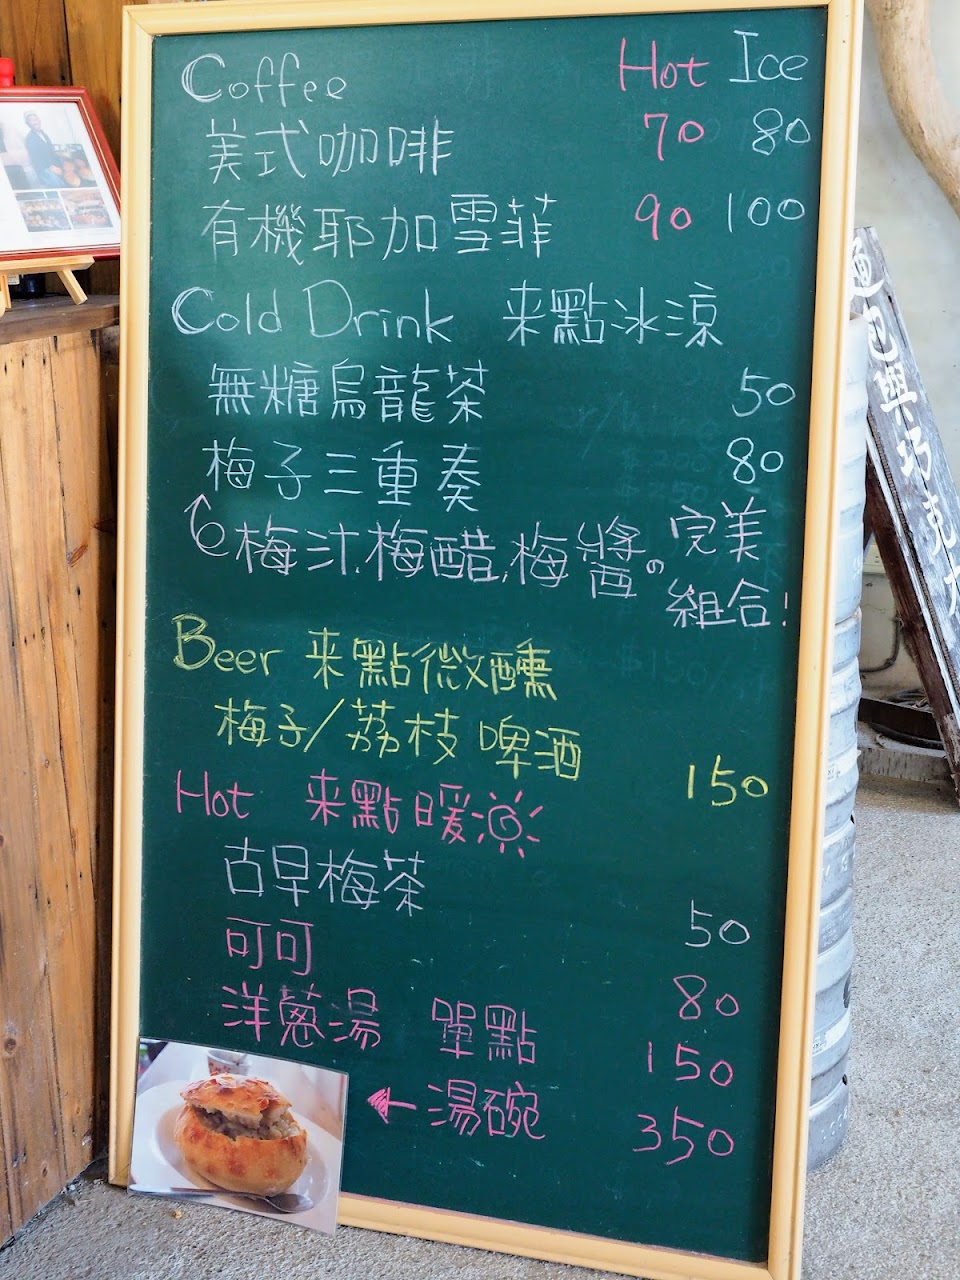 Coffee Hot Ice
美式咖啡 70 80
有機耶加雪菲 90 100
Cold Drink 来點冰涼
無糖烏龍茶 50
梅子三重奏 80
梅汁,梅醋,梅醬の完美
組合!
Beer 来點微醺
梅子/荔枝啤酒 150
Hot 来點暖
古早梅茶 50
可可 80
洋蔥湯 單點 150
←湯碗 350
麵包與巧克力